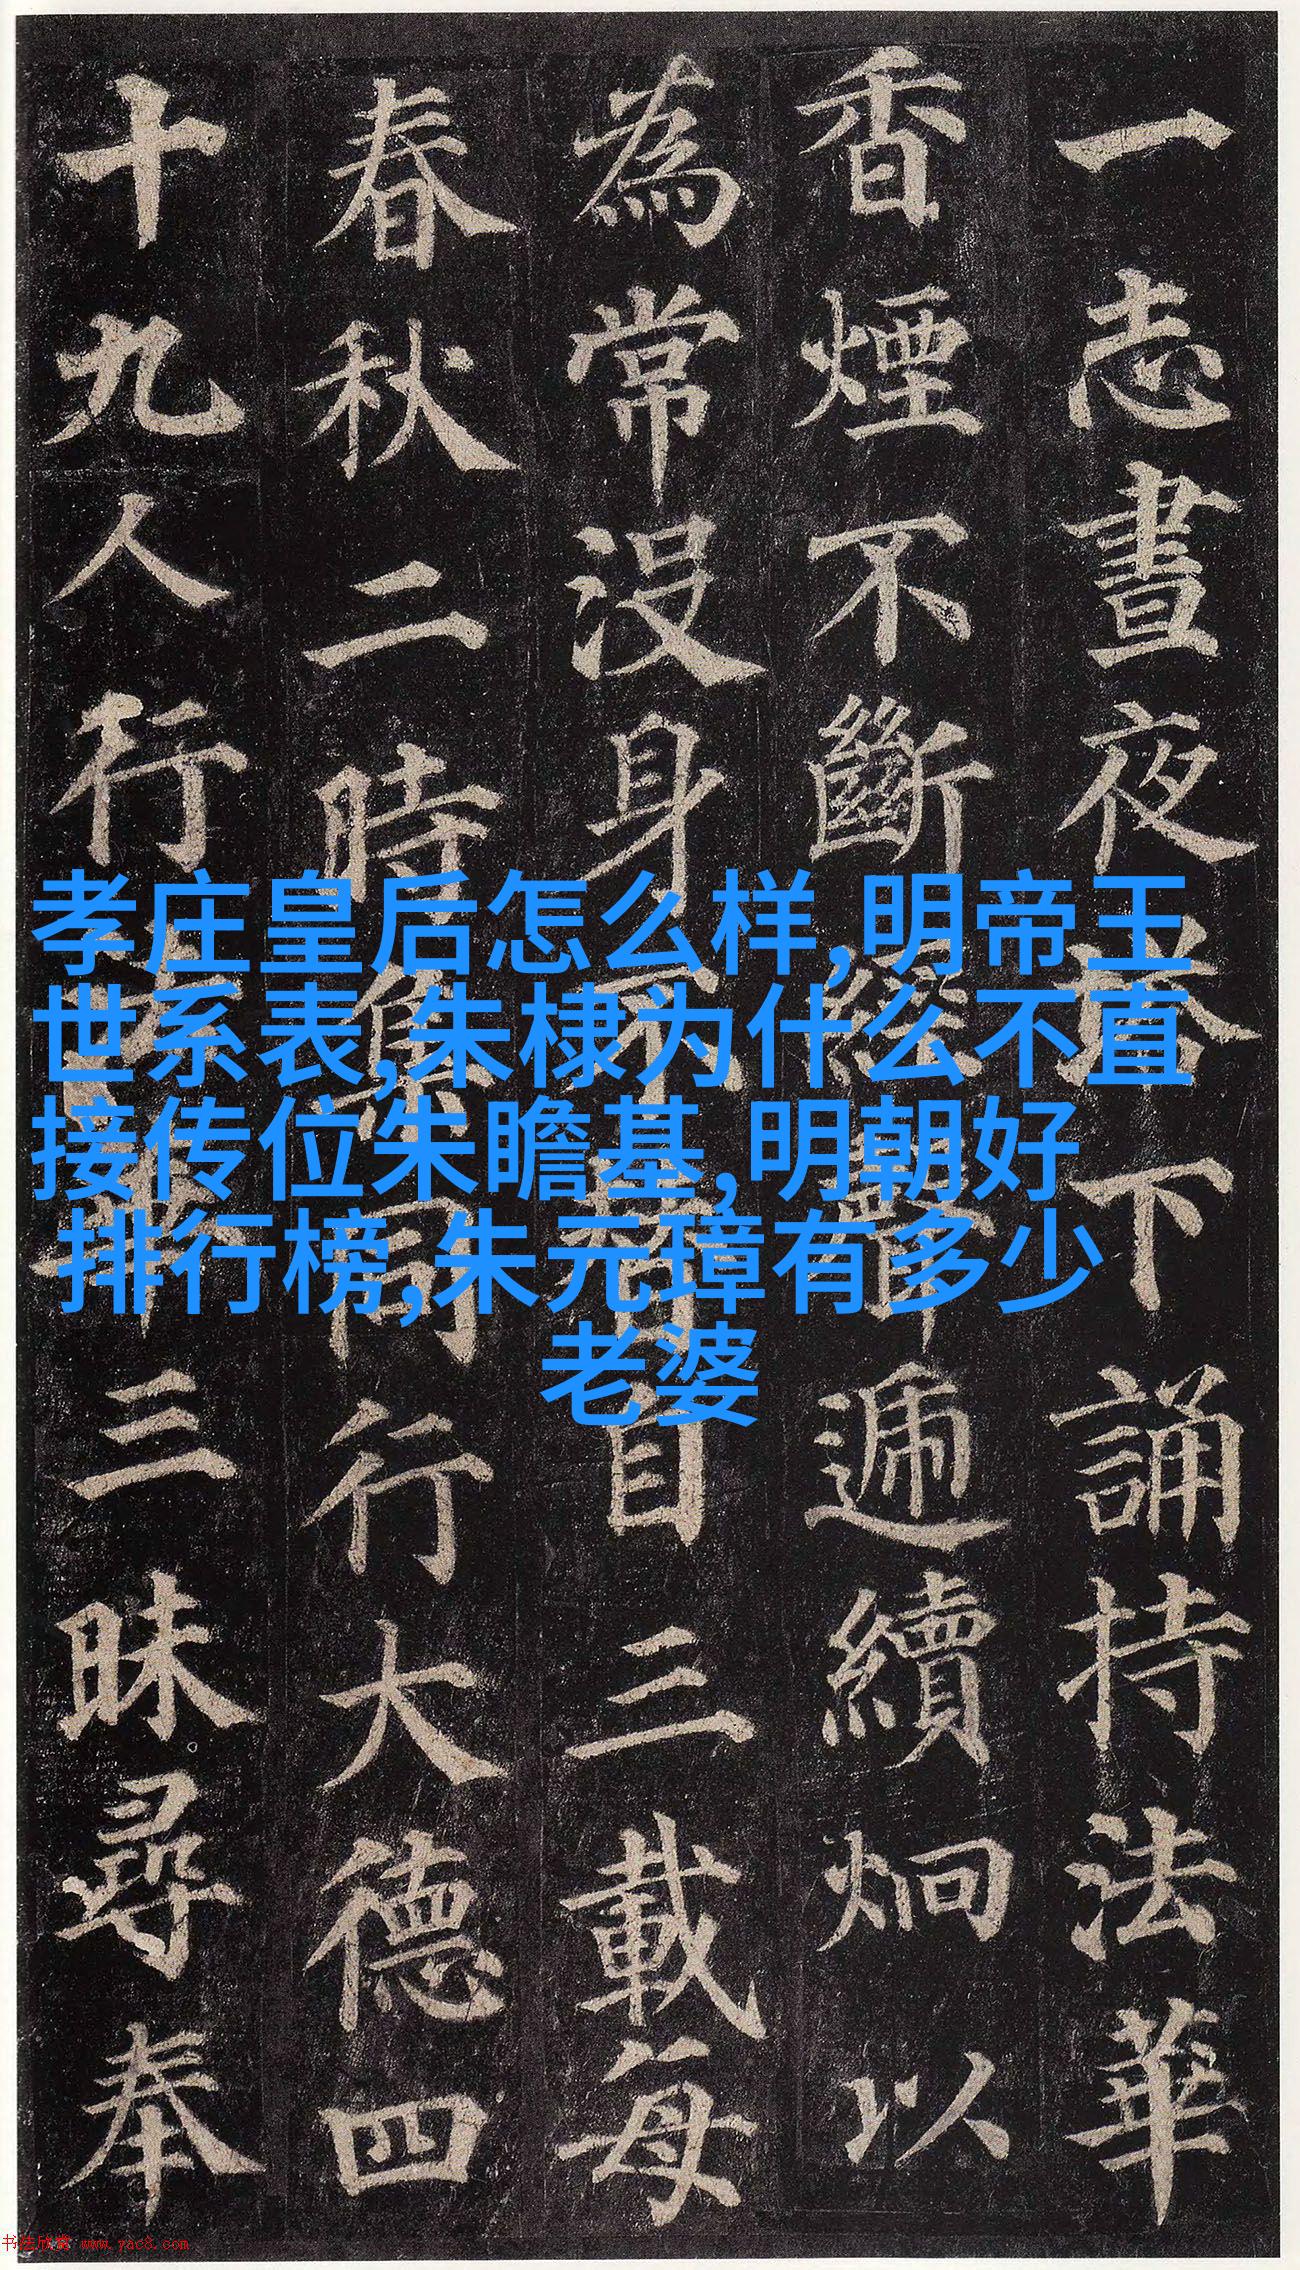 一志晝夜塔下誦持法華
香煙不斷經聲遞續炯以
為常沒身不替自三載每
春秋二時集同行大德四
十九人行法華三昧尋奉
孝庄皇后怎么样,明帝王
世系表,朱棣为什么不直
接传位朱瞻基,明朝好
排行榜,朱元璋有多少
老婆
书法欣赏 www.yac8.com